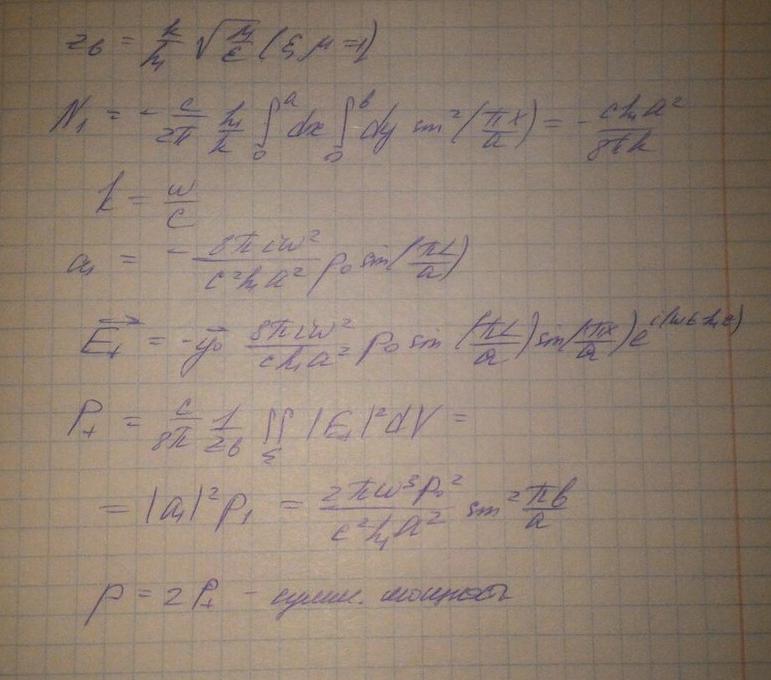 z_в = k/h₁ √(μ/ε) (ε, μ = 1)
N₁ = - c/2π h₁/k ∫₀ᵃ dx ∫₀ᵇ dy sin²(πx/a) = - ch₁a²/8πk
k = ω/c
a₁ = - 8πiω²/c²h₁a² p₀ sin(πL/a)
E₊ = -y₀ 8πiω²/ch₁a² p₀ sin(πL/a) sin(πx/a) e^i(ωt-h₁z)
P₊ = c/8π 1/z_в ∬_Σ |E₊|² dV =
= |a₁|² P₁ = 2πω³p₀²/c²h₁a² sin² πb/a
P = 2P₊ - сумм. мощность